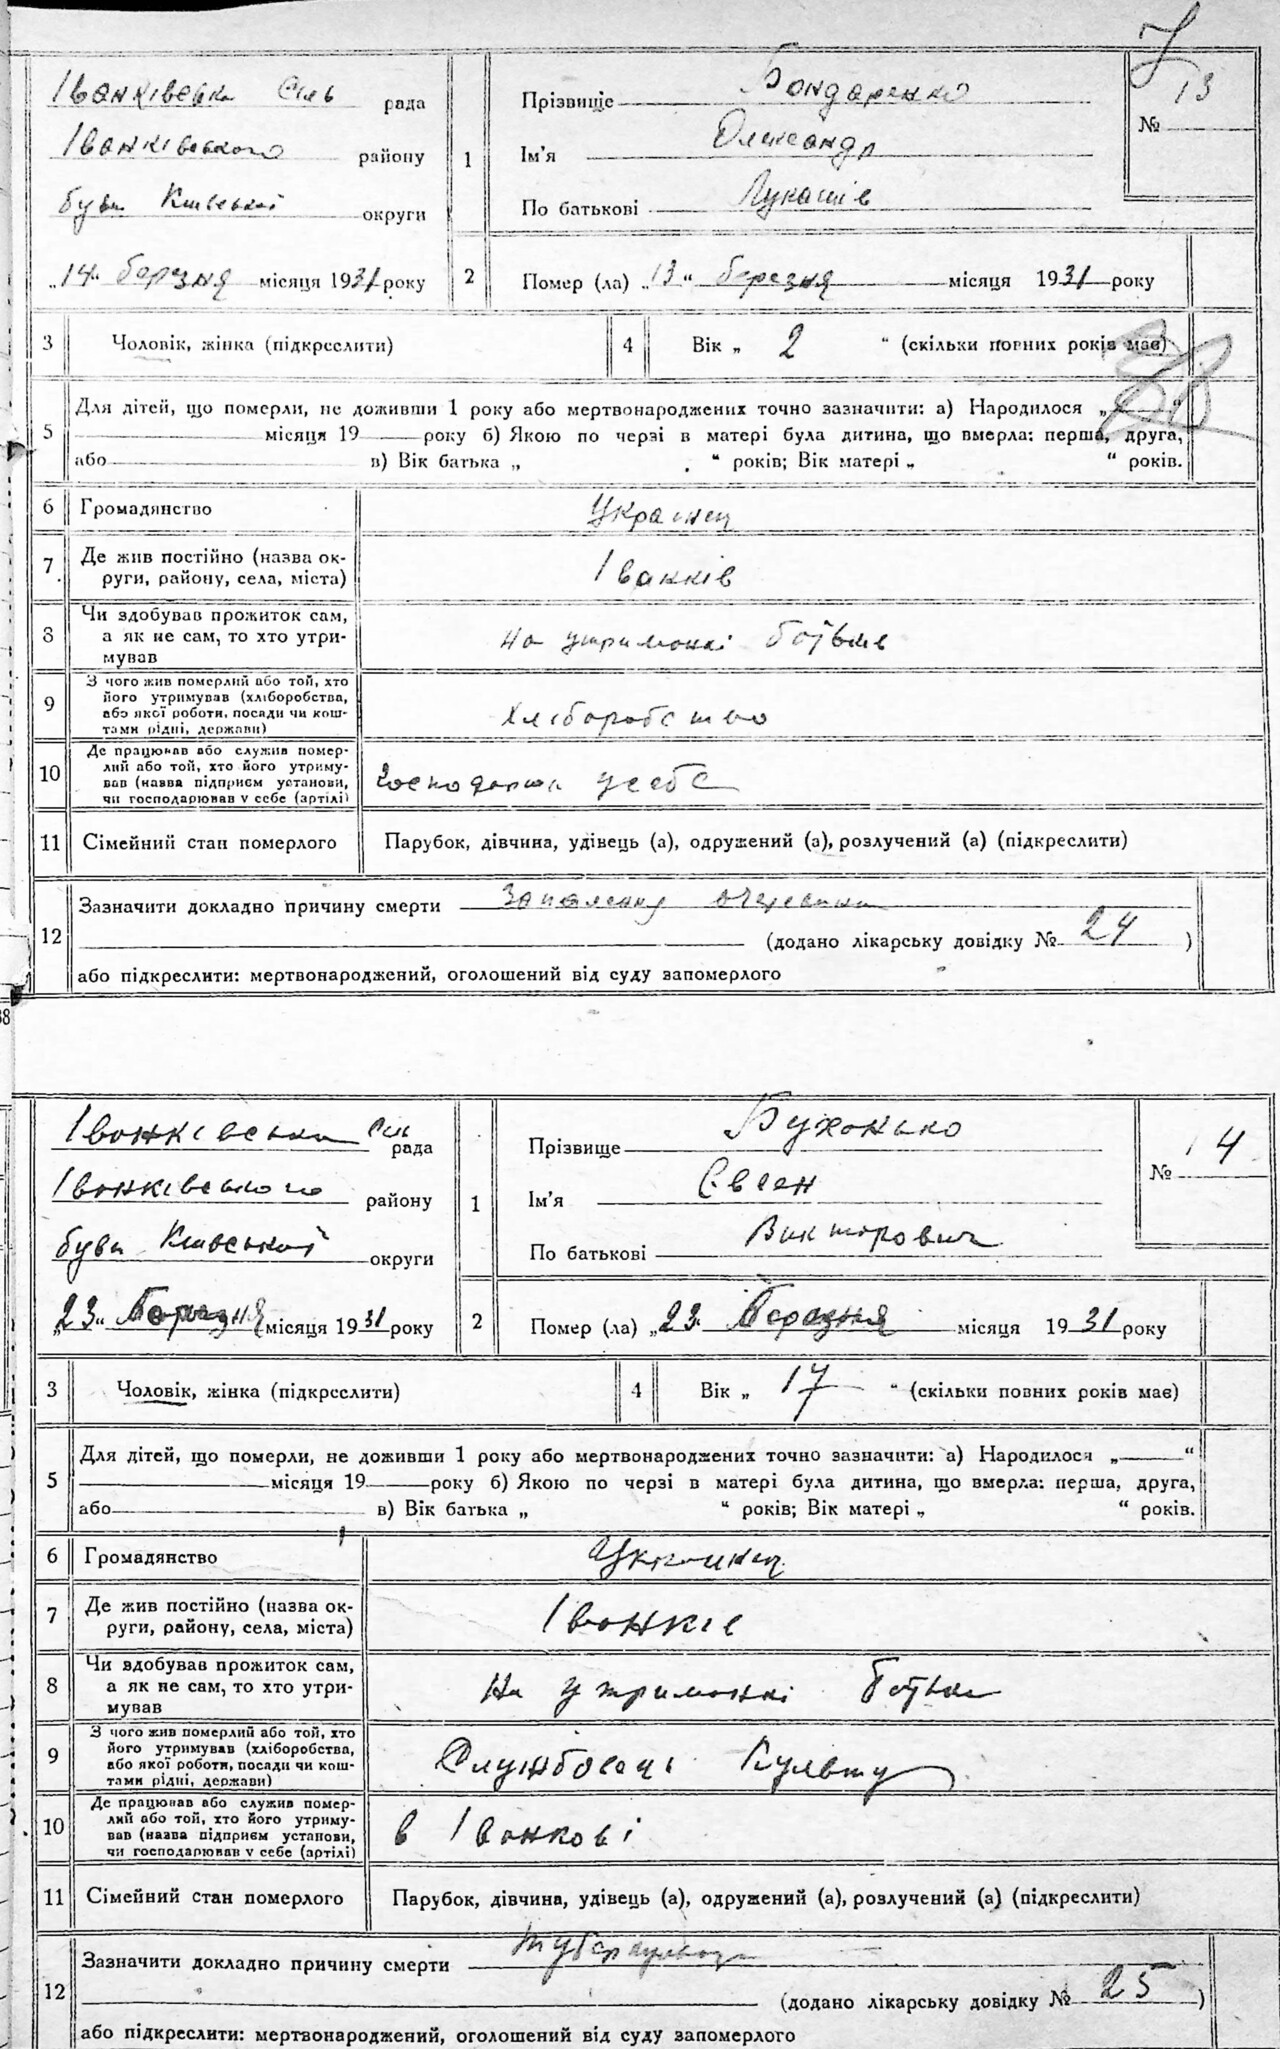 7
Іванківська Сіль рада
Іванківського району
був. Київської округи
„14“ березня місяця 1931 року
1
Прізвище Бондаренко
Ім'я Олександр
По батькові Лукашів
№ 13
2 Помер (ла) „13“ березня місяця 1931 року
3 Чоловік, жінка (підкреслити)
4 Вік „ 2 “ (скільки повних років має)
5 Для дітей, що померли, не доживши 1 року або мертвонароджених точно зазначити: а) Народилося „ “
місяця 19 року б) Якою по черзі в матері була дитина, що вмерла: перша, друга,
або в) Вік батька „ “ років; Вік матері „ “ років.
6 Громадянство Українец
7 Де жив постійно (назва ок-
руги, району, села, міста) Іванків
8 Чи здобував прожиток сам,
а як не сам, то хто утри-
мував на утриманні батьків
9 З чого жив померлий або той, хто
його утримував (хліборобства,
або якої роботи, посади чи кош-
тами рідні, держави) Хліборобство
10 Де працював або служив помер-
лий або той, хто його утриму-
вав (назва підприєм установи,
чи господарював у себе (артілі) господарял у себе
11 Сімейний стан померлого Парубок, дівчина, удівець (а), одружений (а), розлучений (а) (підкреслити)
12 Зазначити докладно причину смерти Запалення
(додано лікарську довідку № 24 )
або підкреслити: мертвонароджений, оголошений від суду запомерлого
38
Іванківська Сіль рада
Іванківського району
був. Київської округи
„23“ Березня місяця 1931 року
1
Прізвище Буханько
Ім'я Євген
По батькові Викторович
№ 14
2 Помер (ла) „23“ Березня місяця 1931 року
3 Чоловік, жінка (підкреслити)
4 Вік „ 17 “ (скільки повних років має)
5 Для дітей, що померли, не доживши 1 року або мертвонароджених точно зазначити: а) Народилося „ “
місяця 19 року б) Якою по черзі в матері була дитина, що вмерла: перша, друга,
або в) Вік батька „ “ років; Вік матері „ “ років.
6 Громадянство Українец
7 Де жив постійно (назва ок-
руги, району, села, міста) Іванків
8 Чи здобував прожиток сам,
а як не сам, то хто утри-
мував На утриманні батька
9 З чого жив померлий або той, хто
його утримував (хліборобства,
або якої роботи, посади чи кош-
тами рідні, держави) Службовець Культу
10 Де працював або служив помер-
лий або той, хто його утриму-
вав (назва підприєм установи,
чи господарював у себе (артілі) в Іванкові
11 Сімейний стан померлого Парубок, дівчина, удівець (а), одружений (а), розлучений (а) (підкреслити)
12 Зазначити докладно причину смерти туберкульоз
(додано лікарську довідку № 25 )
або підкреслити: мертвонароджений, оголошений від суду запомерлого